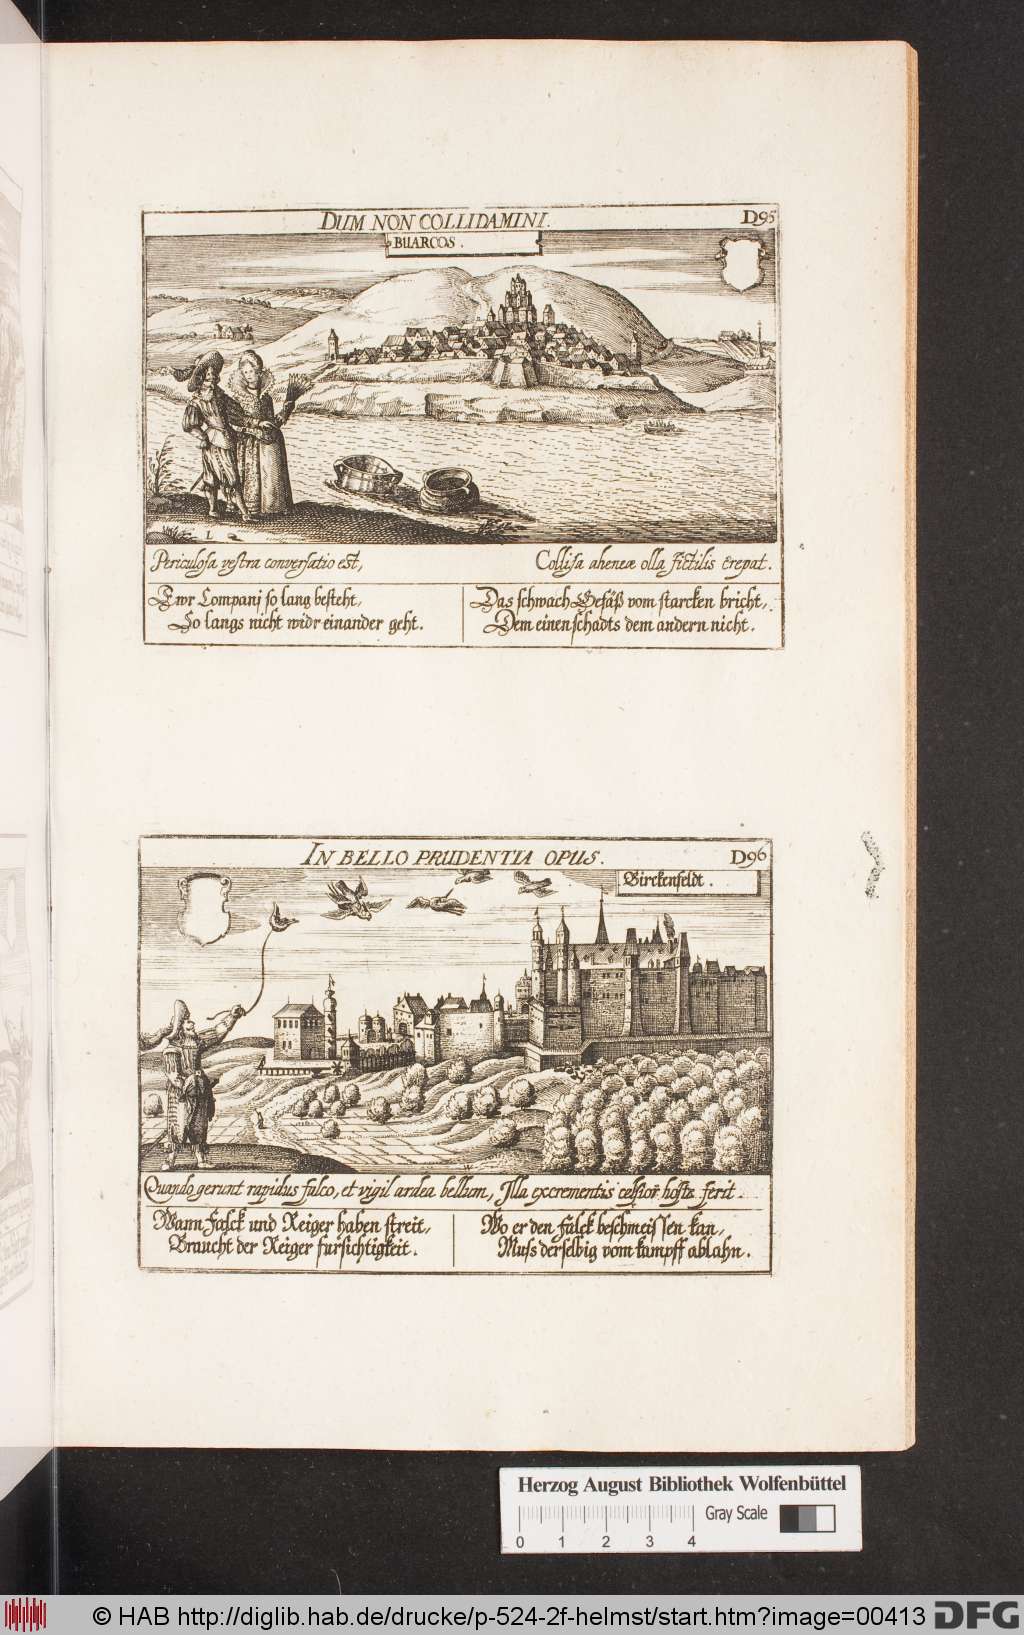 DUM NON COLLIDAMINI.
D95
BUARCOS.
L
Periculosa vestra conversatio est,
Collisa aheneæ olla fictilis crepat.
Ewr Companj so lang besteht,
So langs nicht widr einander geht.
Das schwach Gefäß vom starcken bricht,
Dem einen schadts dem andern nicht.
IN BELLO PRUDENTIA OPUS.
D96
Birckenfeldt.
Quando gerunt rapidus falco, et vigil ardea bellum, Illa excrementis celsior hoste ferit.
Wann Falck und Reiger haben streit,
Braucht der Reiger fursichtigkeit.
Wo er den Falck beschmeissen kan,
Muss derselbig vom kampff ablahn.
Herzog August Bibliothek Wolfenbüttel
Gray Scale
0 1 2 3 4
© HAB http://diglib.hab.de/drucke/p-524-2f-helmst/start.htm?image=00413
DFG